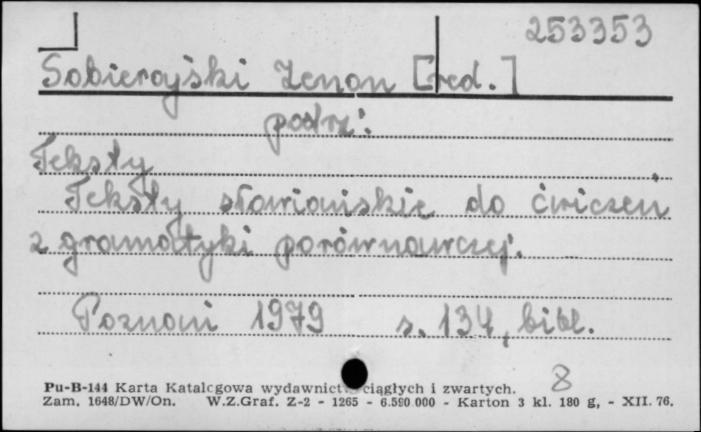 253353
Sobierajski Zenon [red.]
patrz:
Teksty
Teksty słowiańskie do ćwiczeń
z gramatyki porównawczej.
Poznań 1979 s. 134, bibl.
8
Pu-B-144 Karta Katalogowa wydawnictw ciągłych i zwartych.
Zam. 1648/DW/On. W.Z.Graf. Z-2 - 1265 - 6.590.000 - Karton 3 kl. 180 g, - XII. 76.